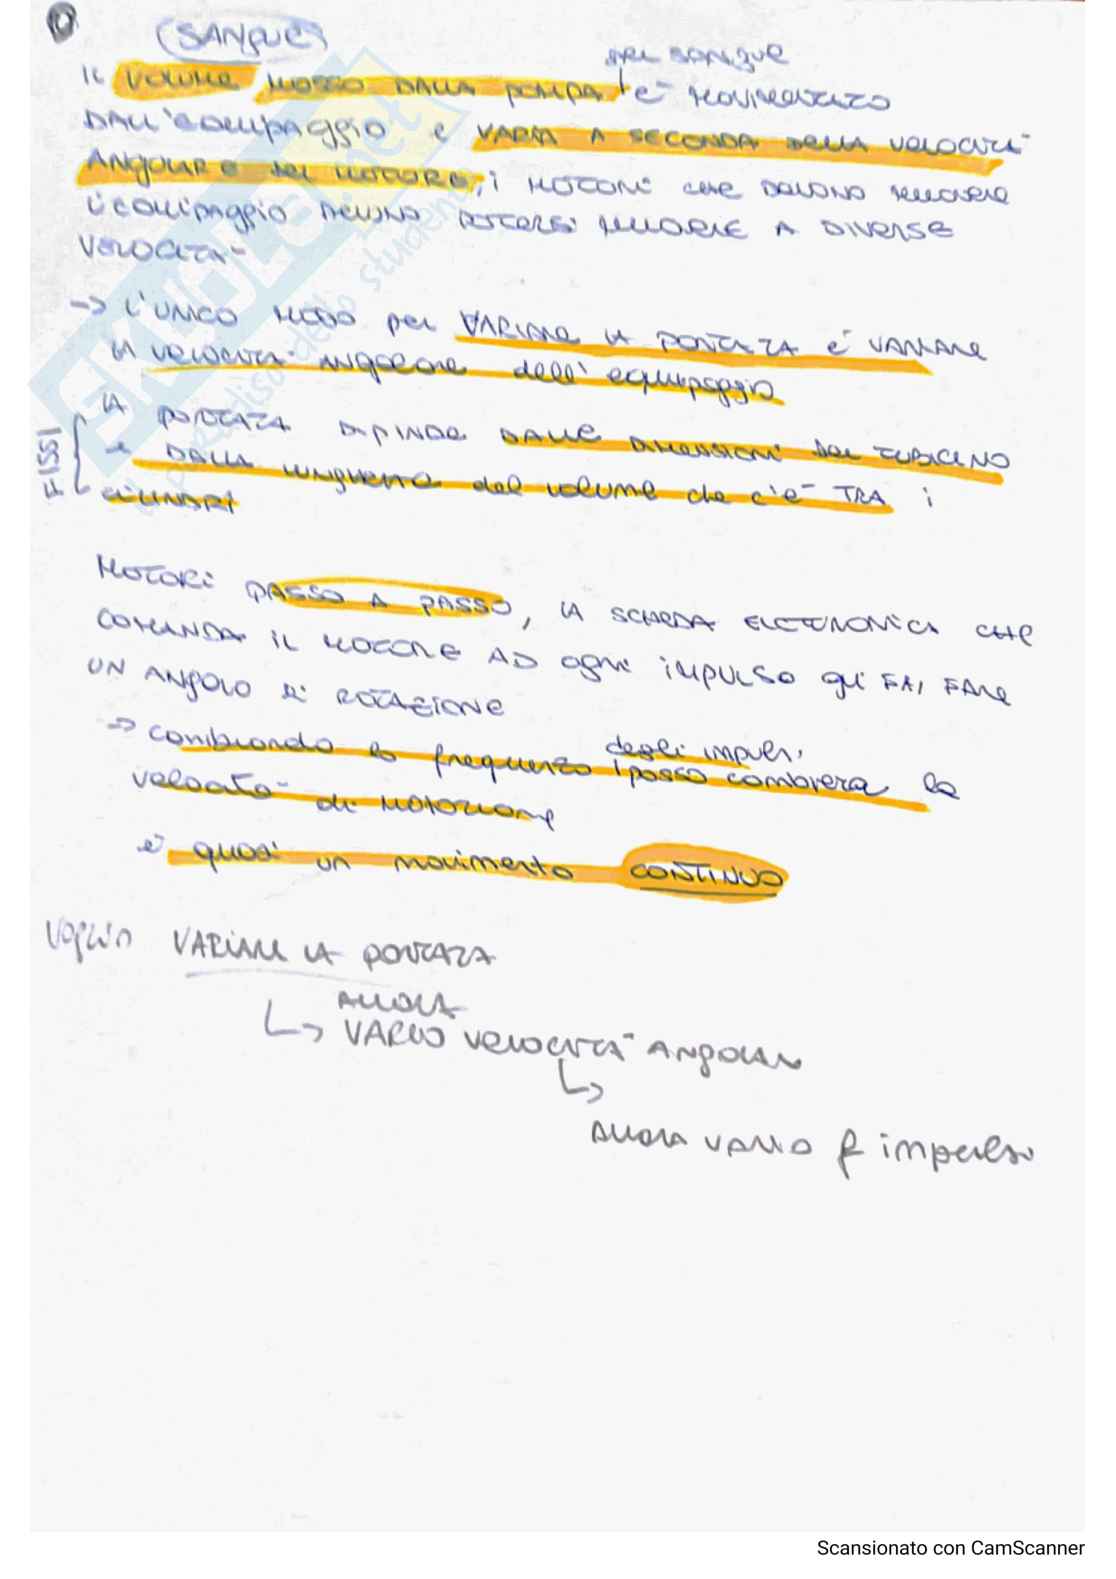 (SANGUE)
DEL SANGUE
IL VOLUME MOSSO DALLA POMPA è MOVIMENTATO
DALL'EQUIPAGGIO e VARIA A SECONDA DELLA VELOCITÀ
ANGOLARE DEL MOTORE, i MOTORI CHE DEVONO MUOVERE
L'EQUIPAGGIO DEVONO POTERSI MUOVERE A DIVERSE
VELOCITÀ
-> L'UNICO MODO per VARIARE LA PORTATA è VARIARE
LA VELOCITÀ ANGOLARE dell'equipaggio
FISSI
LA PORTATA DIPENDE DALLE DIMENSIONI DEL TUBICINO
e DALLA lunghezza del volume che c'è TRA i
CILINDRI
MOTORI PASSO A PASSO, LA SCHEDA ELETTRONICA CHE
COMANDA IL MOTORE AD OGNI IMPULSO gli FAI FARE
UN ANGOLO DI ROTAZIONE
-> cambiando la frequenza degli impulsi passo cambierà la
velocità di rotazione
è quasi un movimento CONTINUO
VOGLIO VARIARE LA PORTATA
ALLORA
VARIO VELOCITÀ ANGOLARE
ALLORA VARIO f impulso
SKUOLA.net
paradiso dello studente
Scansionato con CamScanner